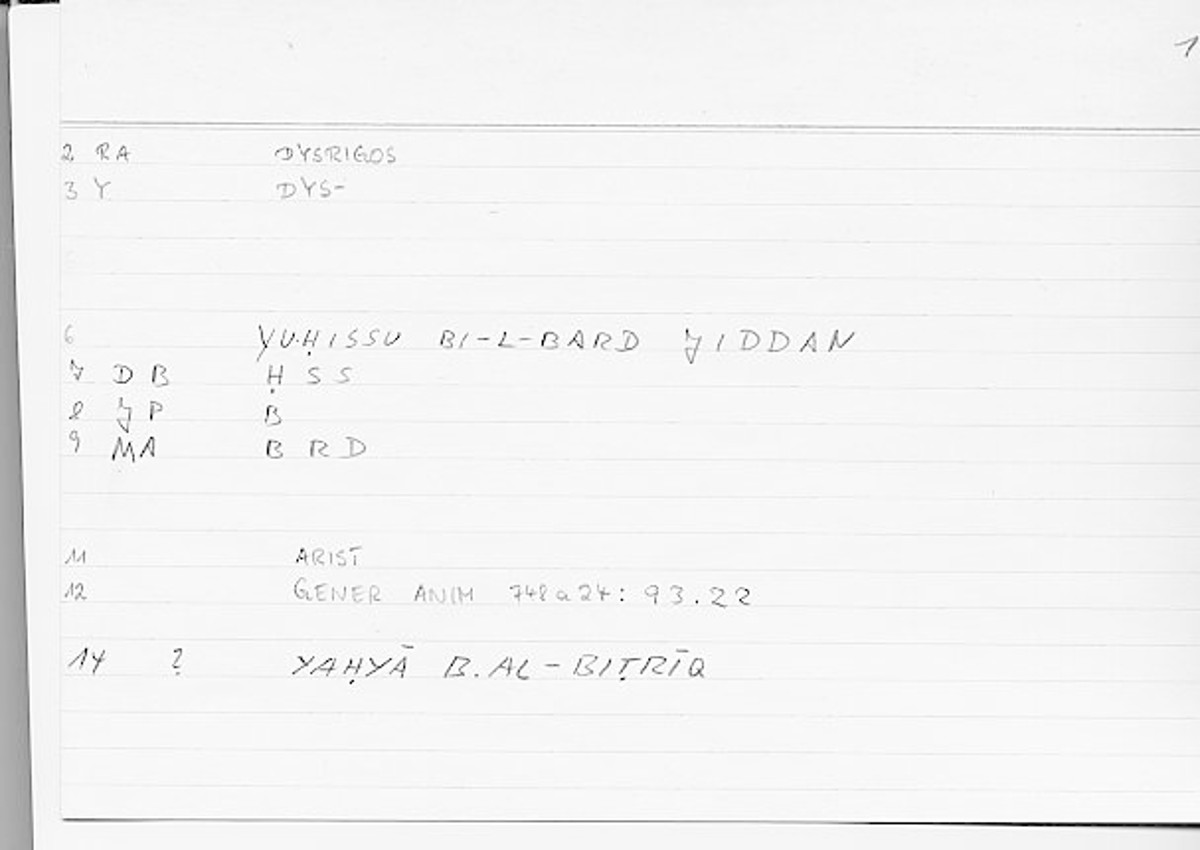 1
2 RA DYSRIGOS
3 Y DYS-
6 YUḤISSU BI-L-BARD JIDDAN
7 DB ḤSS
8 JP B
9 MA BRD
11 ARIST
12 GENER ANIM 748a24: 93.22
14 ? YAḤYĀ B. AL-BIṬRĪQ